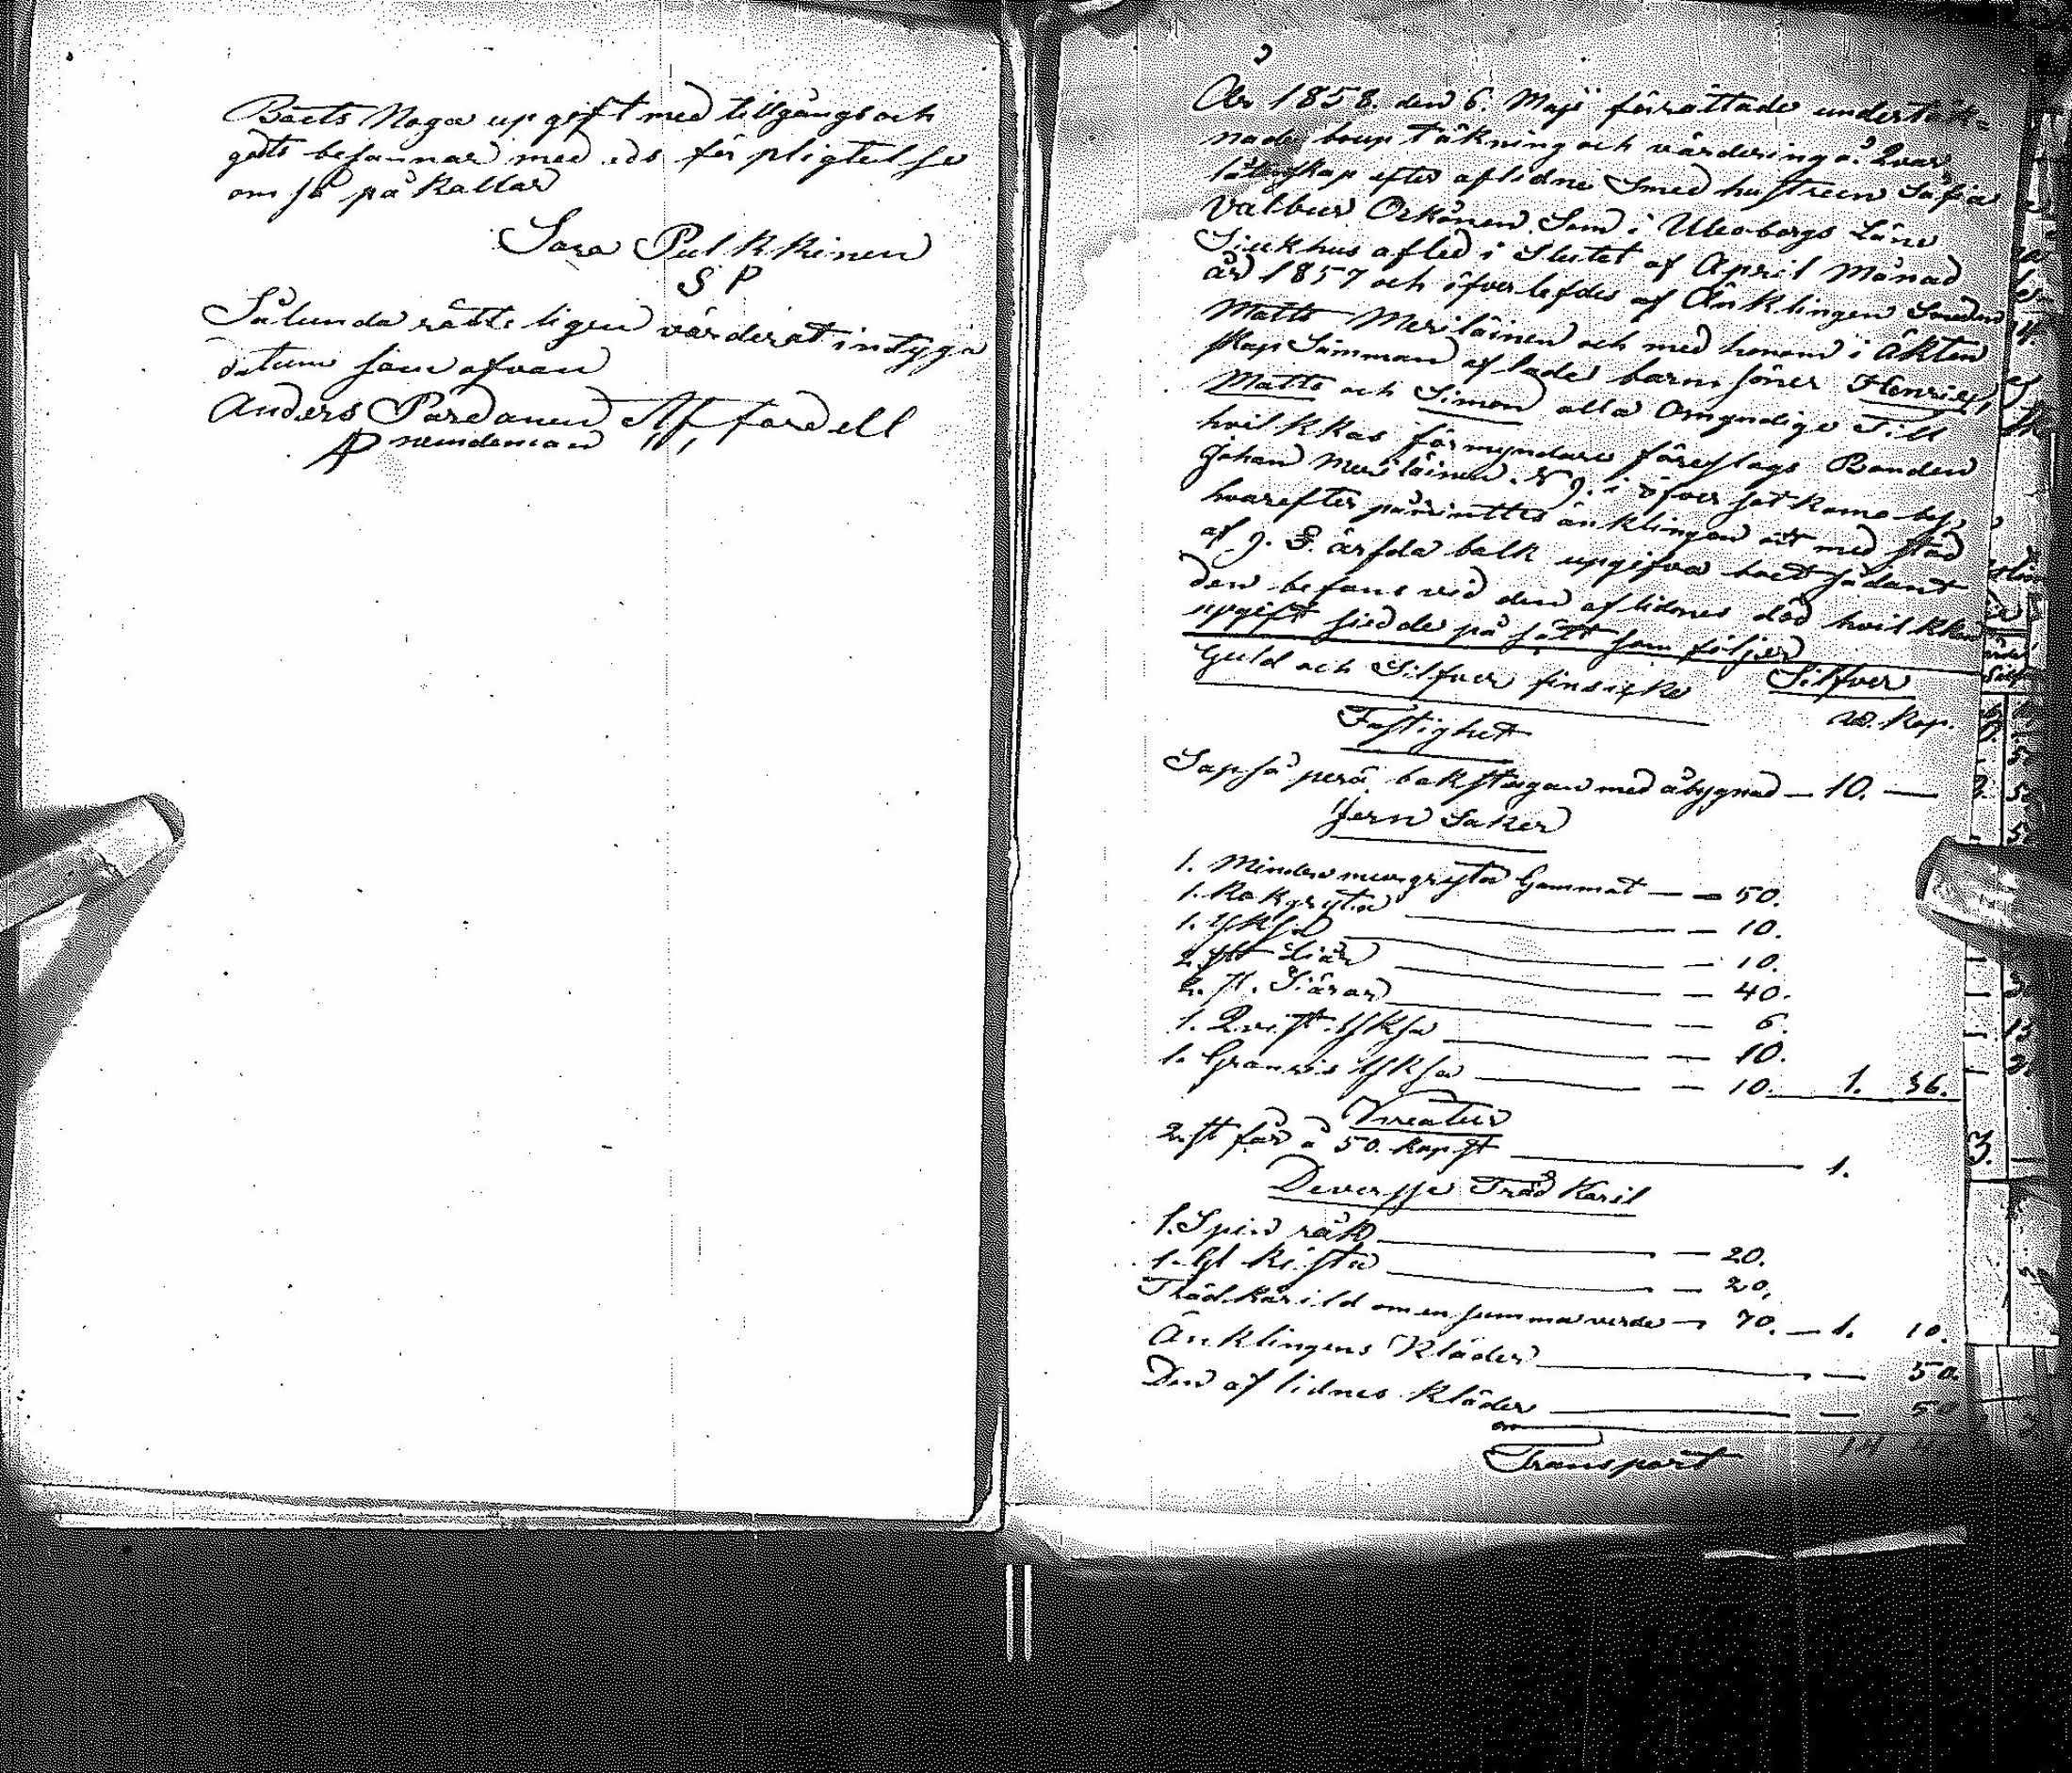 Boets Noga upgift med tillgångs och
gäts befannar med eds för pligtelse
om så på kallar
Sara Pulkkinen
S P
Sålunda rätte ligen värderat intyga
datum som ofvan
Anders Pardanen
AP nemdeman
År 1858. den 6. Maji förrättade underták=
nade boup täkning och värdering å? Qvar
låtenskap efter aflidne Smed hustrun Sofia
Valbur Orkönen Som i Uleoborgs Läns
Siukhus afled i Slutet af April Månad
år 1857 och öfverlefdes af Änklingen Smeden
Matts Meriläinen och med honom i äkten
skap Samman aflade barn söner Henric,
Matts och Simon alla Omyndige Till
hvilkkas förmyndare föreslags Bonden
Johan Meriläinen. N 9. i öfver
hvarefter påmintes änklingen att med stöd
af 9. ärfda balk upgifva boet sådant
den befans vid den aflidnes död hvilkken
upgift siedde på sätt som följer
Guld och Silfver finsicke Silfver
R. Kop.
Fastighet
Sapså perä bakstugan med åbygnad — 10. —
Jern Saker
1. Mindre murgryta Gammal — — 50.
1. Kokgryta — 10.
1. yksa — 10.
2. st Liär — 40.
2. st. Siärar — 6.
1. Qvist yksa — 10.
1. yksa — 10. 1. 36.
Kreatur
2. st får a 50. kop st 1.
Deversse Träd Käril
1. Spin råk — 20.
1. Gl kista — 20.
Trädkärild om en summa verde — 70. — 1. 10.
Änklingens Kläder — 50.
Den aflidnes Kläder — 50
Transport 14